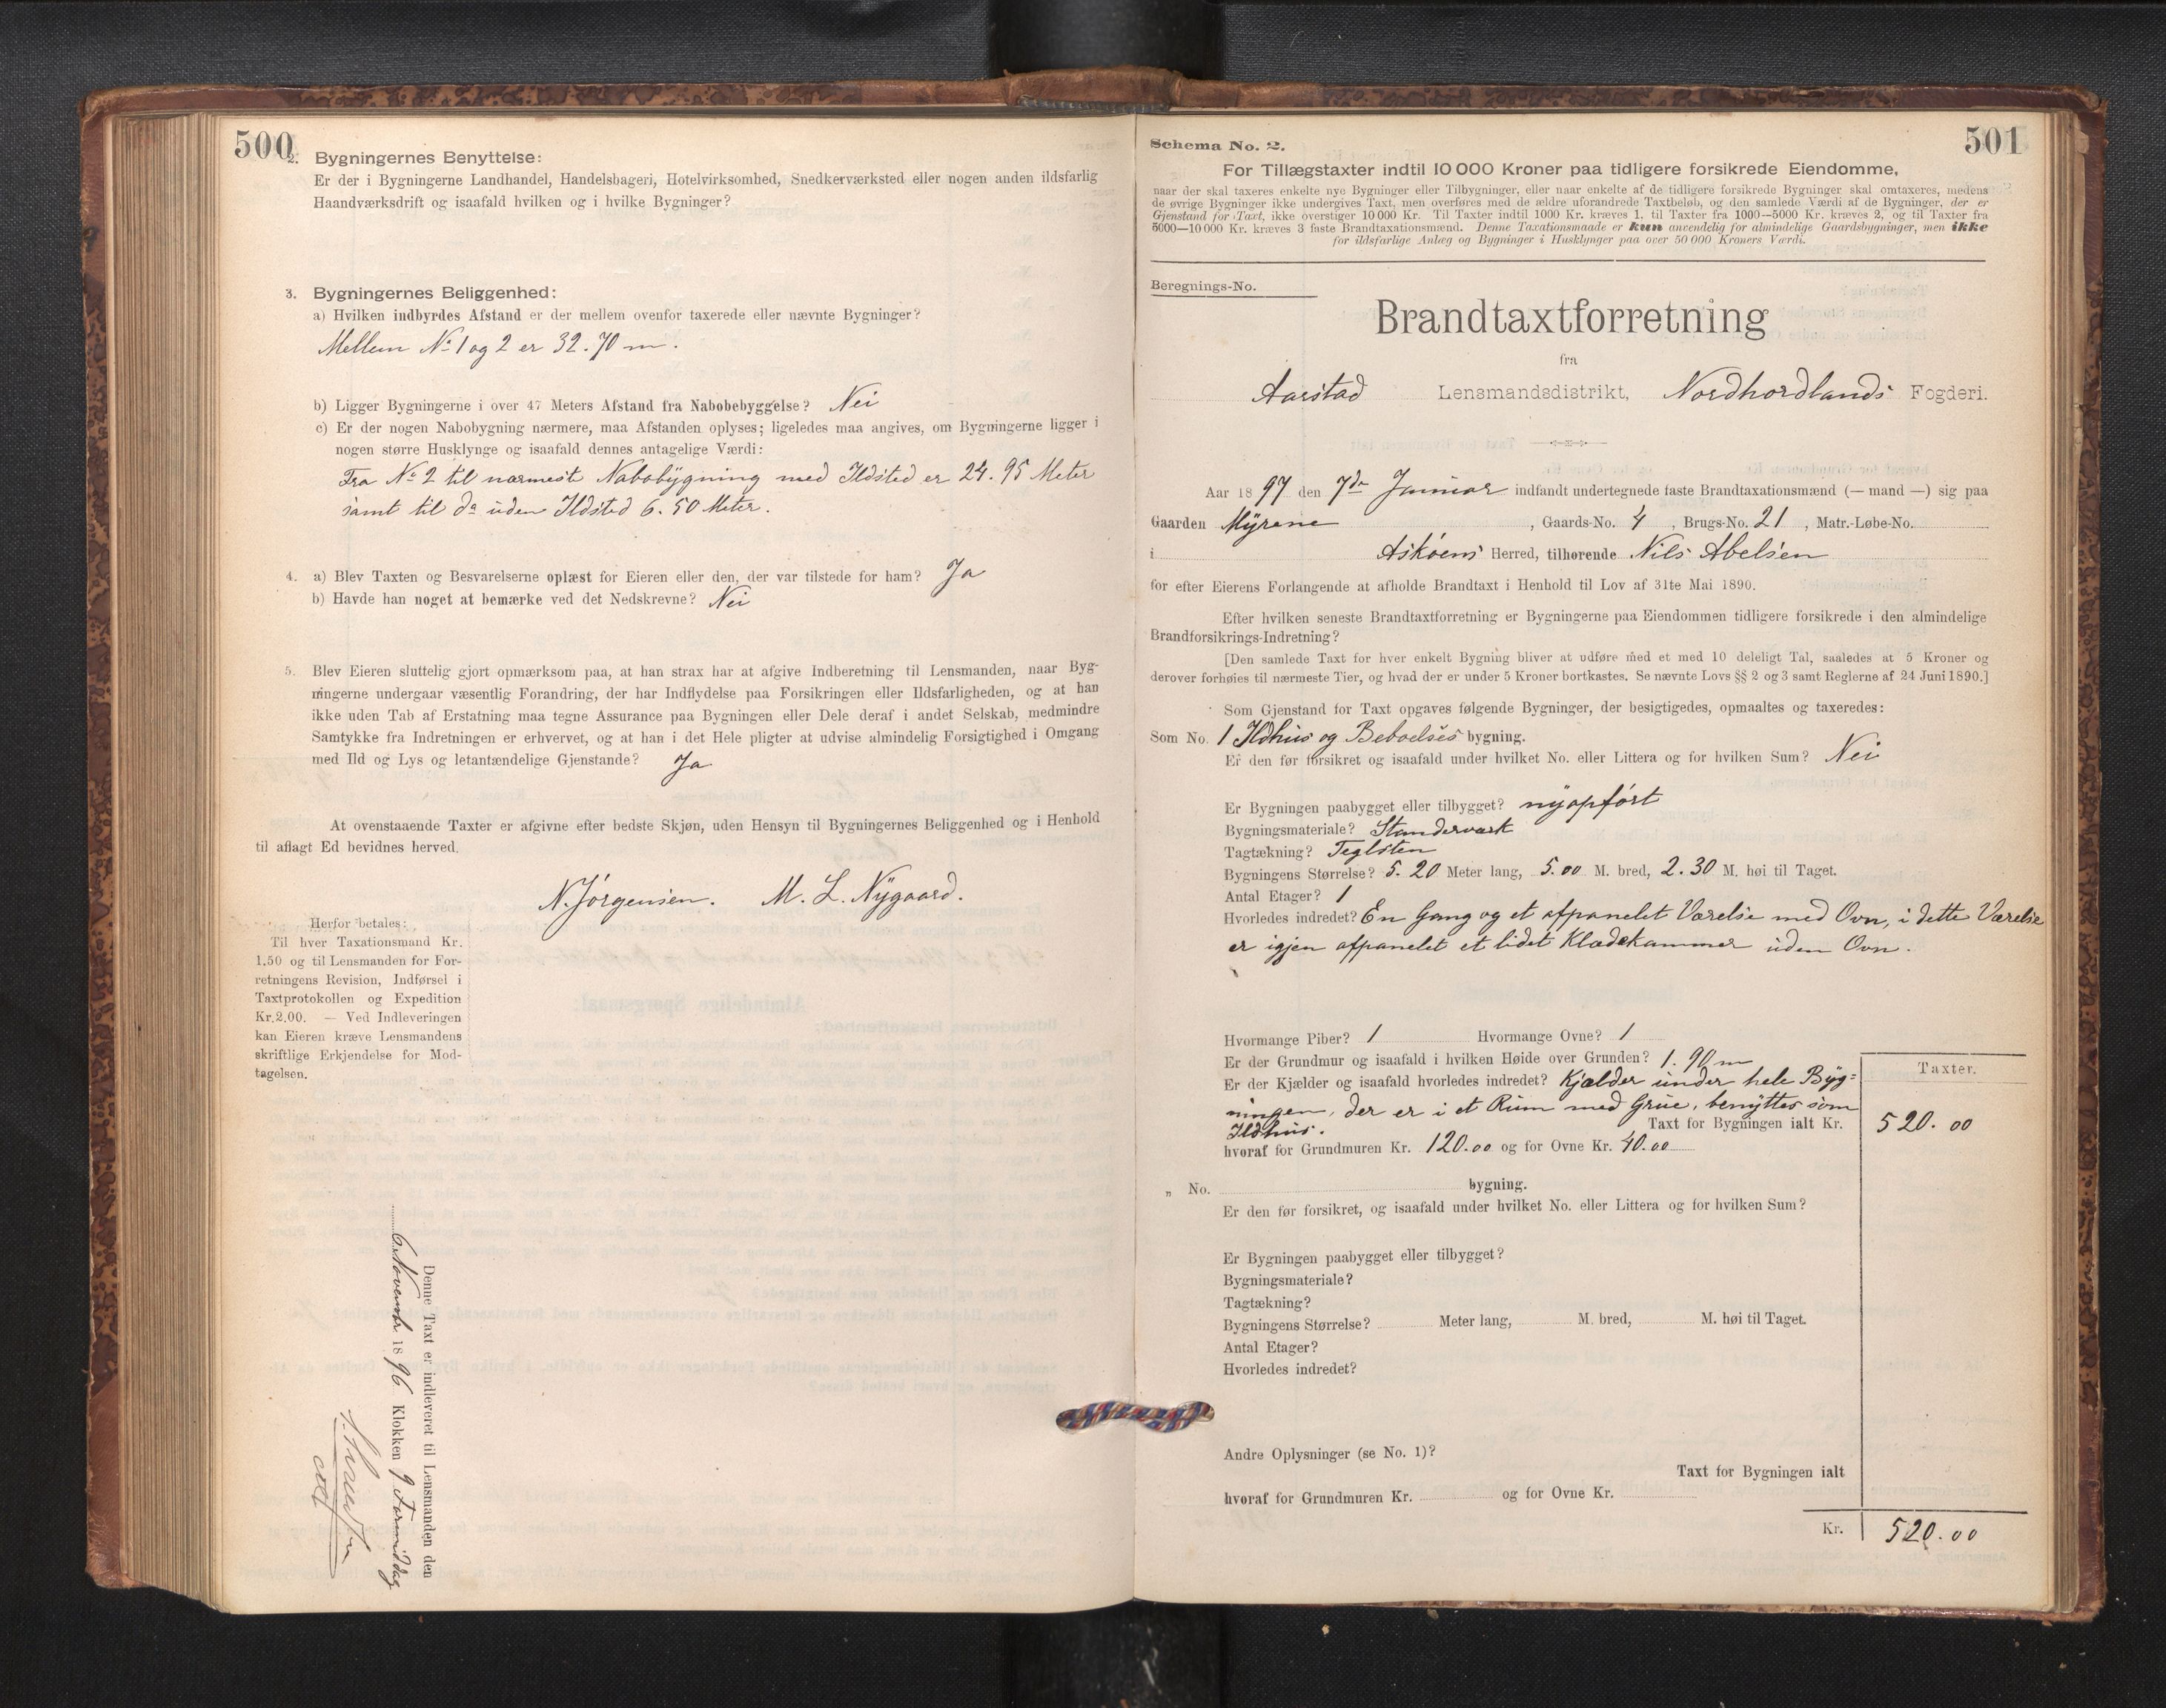 500
2. Bygningernes Benyttelse:
Er der i Bygningerne Landhandel, Handelsbageri, Hotelvirksomhed, Snedkerværksted eller nogen anden ildsfarlig
Haandværksdrift og isaafald hvilken og i hvilke Bygninger?
3. Bygningernes Beliggenhed:
a) Hvilken indbyrdes Afstand er der mellem ovenfor taxerede eller nævnte Bygninger?
Mellem No 1 og 2 er 32.70 m.
b) Ligger Bygningerne i over 47 Meters Afstand fra Nabobebyggelse? Nei
c) Er der nogen Nabobygning nærmere, maa Afstanden oplyses; ligeledes maa angives, om Bygningerne ligger i
nogen større Husklynge og isaafald dennes antagelige Værdi:
Fra No 2 til nærmest Nabobygning med Ildsted er 24.95 Meter
samt til do uden Ildsted 6.50 Meter.
4. a) Blev Taxten og Besvarelserne oplæst for Eieren eller den, der var tilstede for ham? Ja
b) Havde han noget at bemærke ved det Nedskrevne? Nei
5. Blev Eieren sluttelig gjort opmærksom paa, at han strax har at afgive Indberetning til Lensmanden, naar Byg-
ningerne undergaar væsentlig Forandring, der har Indflydelse paa Forsikringen eller Ildsfarligheden, og at han
ikke uden Tab af Erstatning maa tegne Assurance paa Bygningen eller Dele deraf i andet Selskab, medmindre
Samtykke fra Indretningen er erhvervet, og at han i det Hele pligter at udvise almindelig Forsigtighed i Omgang
med Ild og Lys og letantændelige Gjenstande? Ja
At ovenstaaende Taxter er afgivne efter bedste Skjøn, uden Hensyn til Bygningernes Beliggenhed og i Henhold
til aflagt Ed bevidnes herved.
N. Jörgensen. M. L. Nygaard.
Herfor betales:
Til hver Taxationsmand Kr.
1.50 og til Lensmanden for For-
retningens Revision, Indførsel i
Taxtprotokollen og Expedition
Kr. 2.00. — Ved Indleveringen
kan Eieren kræve Lensmandens
skriftlige Erkjendelse for Mod-
tagelsen.
Denne Taxt er indleveret til Lensmanden den
6. November 1896 Klokken 9 Formiddag
501
Schema No. 2.
For Tillægstaxter indtil 10 000 Kroner paa tidligere forsikrede Eiendomme,
naar der skal taxeres enkelte nye Bygninger eller Tilbygninger, eller naar enkelte af de tidligere forsikrede Bygninger skal omtaxeres, medens
de øvrige Bygninger ikke undergives Taxt, men overføres med de ældre uforandrede Taxtbeløb, og den samlede Værdi af de Bygninger, der er
Gjenstand for Taxt, ikke overstiger 10 000 Kr. Til Taxter indtil 1000 Kr. kræves 1, til Taxter fra 1000—5000 Kr. kræves 2, og til Taxter fra
5000—10 000 Kr. kræves 3 faste Brandtaxationsmænd. Denne Taxationsmaade er kun anvendelig for almindelige Gaardsbygninger, men ikke
for ildsfarlige Anlæg og Bygninger i Husklynger paa over 50 000 Kroners Værdi.
Beregnings-No.
Brandtaxtforretning
fra
Aarstad Lensmandsdistrikt, Nordhordlands Fogderi.
Aar 1897 den 7de Januar indfandt undertegnede faste Brandtaxationsmænd (— mand —) sig paa
Gaarden Myrene, Gaards-No. 4, Brugs-No. 21, Matr.-Løbe-No.
i Asköens Herred, tilhørende Nils Abelsen
for efter Eierens Forlangende at afholde Brandtaxt i Henhold til Lov af 31te Mai 1890.
Efter hvilken seneste Brandtaxtforretning er Bygningerne paa Eiendommen tidligere forsikrede i den almindelige
Brandforsikrings-Indretning?
[Den samlede Taxt for hver enkelt Bygning bliver at udføre med et med 10 deleligt Tal, saaledes at 5 Kroner og
derover forhøies til nærmeste Tier, og hvad der er under 5 Kroner bortkastes. Se nævnte Lovs §§ 2 og 3 samt Reglerne af 24 Juni 1890.]
Som Gjenstand for Taxt opgaves følgende Bygninger, der besigtigedes, opmaaltes og taxeredes:
Som No. 1 Ildhus og Beboelses bygning.
Er den før forsikret og isaafald under hvilket No. eller Littera og for hvilken Sum? Nei
Er Bygningen paabygget eller tilbygget? nyopfört
Bygningsmateriale? Standerværk
Tagtækning? Teglsten
Bygningens Størrelse? 5.20 Meter lang, 5.00 M. bred, 2.30 M. høi til Taget.
Antal Etager? 1
Hvorledes indredet? En Gang og et afpanelet Værelse med Ovn, i dette Værelse
er igjen afpanelet et lidet Klædekammer uden Ovn.
Hvormange Piber? 1 Hvormange Ovne? 1
Er der Grundmur og isaafald i hvilken Høide over Grunden? 1.90 m
Er der Kjælder og isaafald hvorledes indredet? Kjælder under hele Byg=
Taxter.
ningen, der er i et Rum med Grue, benyttes som
Ildhus. Taxt for Bygningen ialt Kr. 520.00
hvoraf for Grundmuren Kr. 120.00 og for Ovne Kr. 40.00
„ No. bygning.
Er den før forsikret, og isaafald under hvilket No. eller Littera og for hvilken Sum?
Er Bygningen paabygget eller tilbygget?
Bygningsmateriale?
Tagtækning?
Bygningens Størrelse? Meter lang, M. bred, M. høi til Taget.
Antal Etager?
Hvorledes indredet?
Andre Oplysninger (se No. 1)?
Taxt for Bygningen ialt
hvoraf for Grundmuren Kr. og for Ovne Kr.
Kr. 520.00